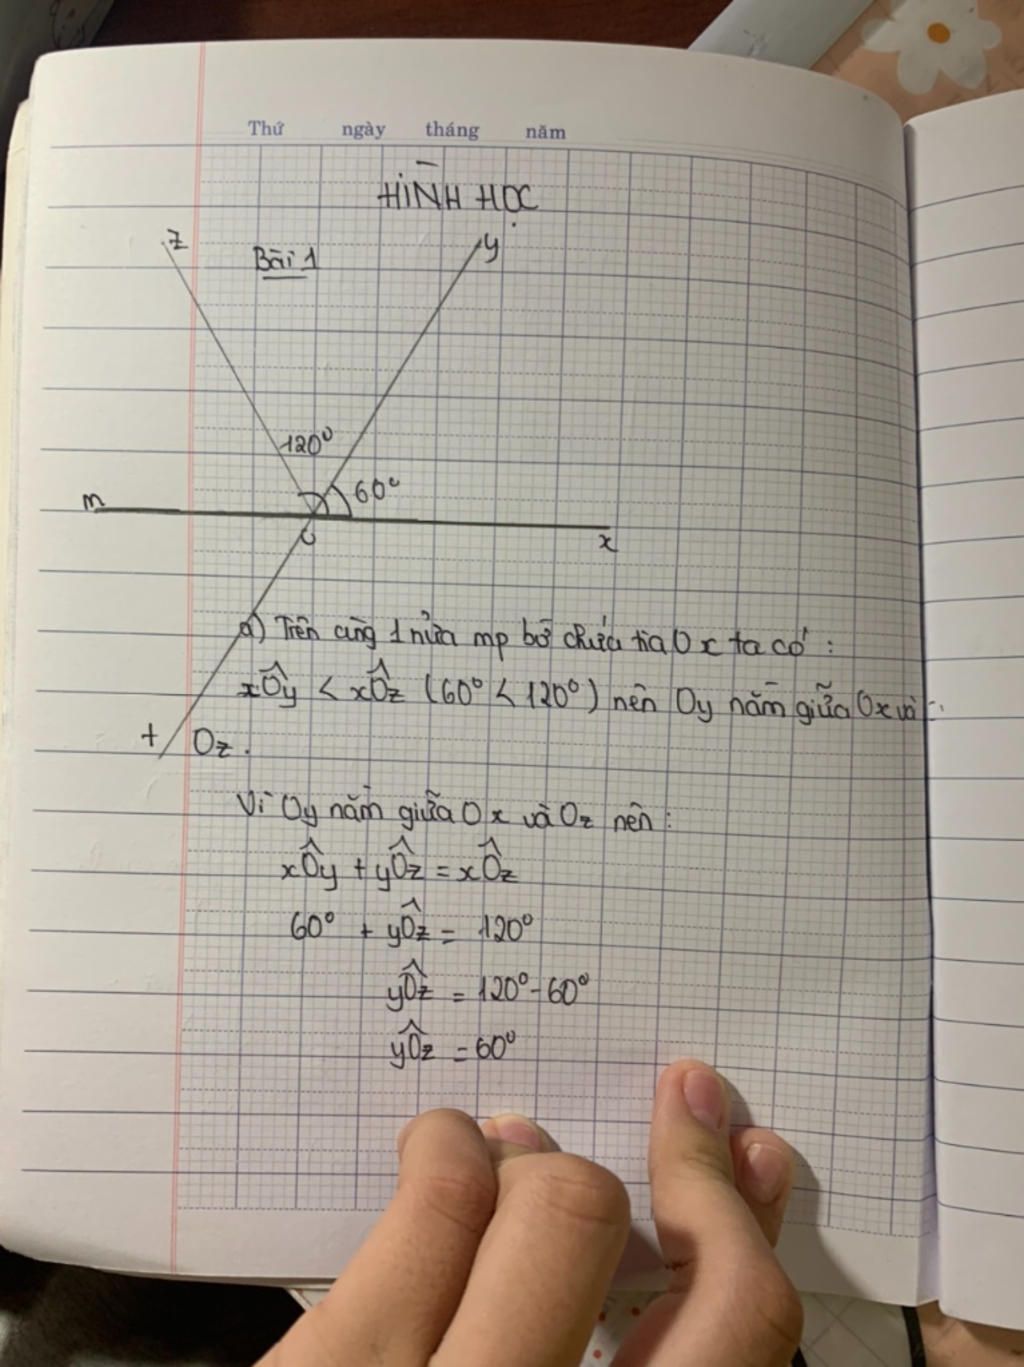 Thứ ngày tháng năm
HÌNH HỌC
Bài 1
z
y
120°
60°
m
O
x
a) Trên cùng 1 nửa mp bờ chứa tia Ox ta có :
xÔy < xÔz (60° < 120°) nên Oy nằm giữa Ox và
t
Oz.
Vì Oy nằm giữa Ox và Oz nên :
xÔy + yÔz = xÔz
60° + yÔz = 120°
yÔz = 120° - 60°
yÔz = 60°